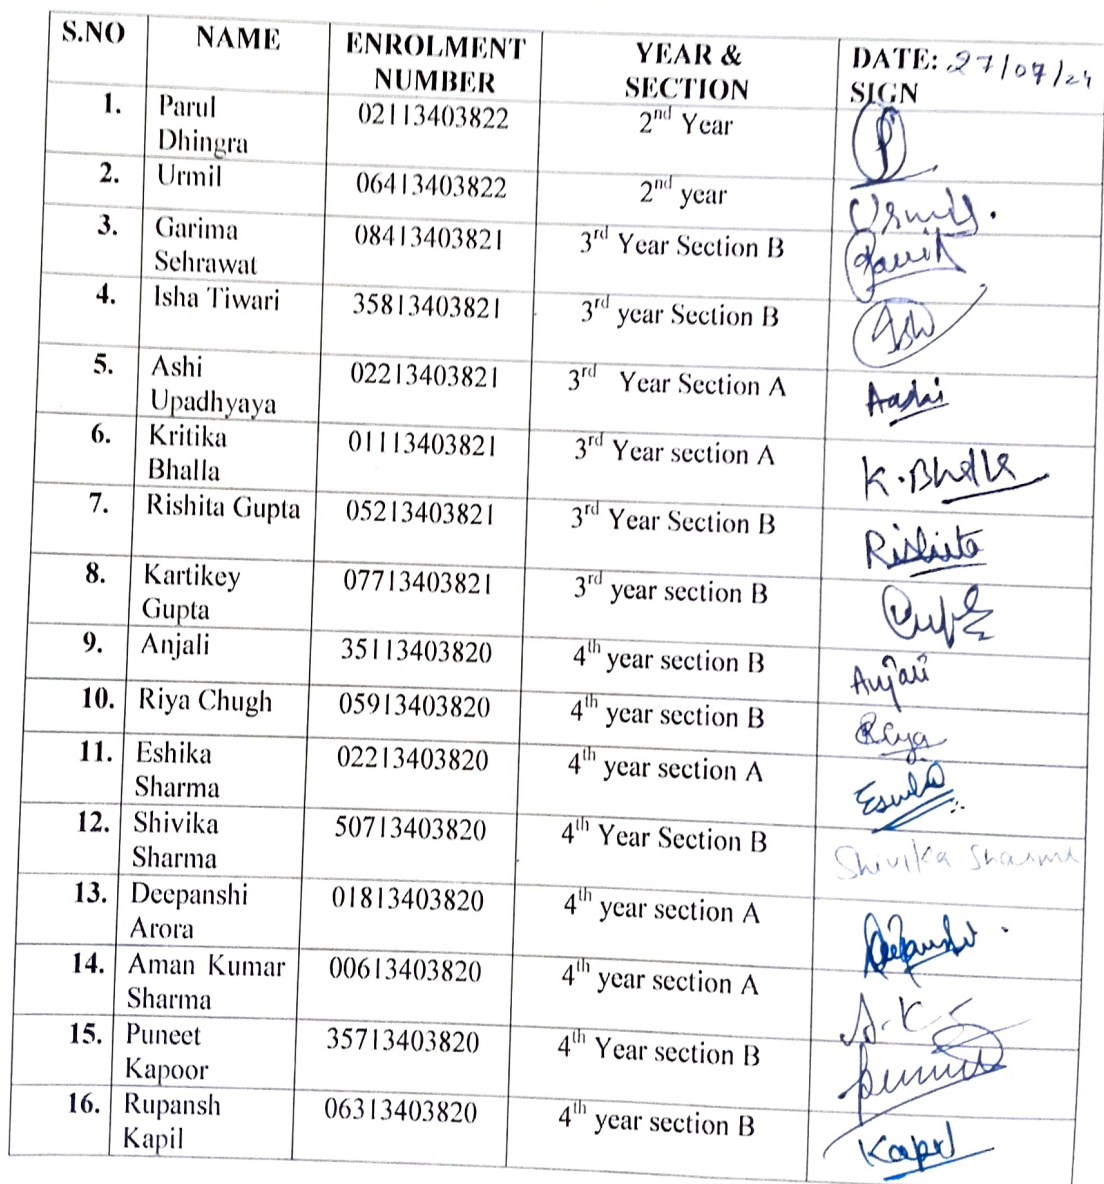 S.NO NAME ENROLMENT NUMBER YEAR & SECTION DATE: 27/07/24 SIGN
1. Parul Dhingra 02113403822 2nd Year
2. Urmil 06413403822 2nd year Urmil.
3. Garima Sehrawat 08413403821 3rd Year Section B
4. Isha Tiwari 35813403821 3rd year Section B
5. Ashi Upadhyaya 02213403821 3rd Year Section A
6. Kritika Bhalla 01113403821 3rd Year section A K.Bhalla
7. Rishita Gupta 05213403821 3rd Year Section B Rishita
8. Kartikey Gupta 07713403821 3rd year section B
9. Anjali 35113403820 4th year section B Anjali
10. Riya Chugh 05913403820 4th year section B Riya
11. Eshika Sharma 02213403820 4th year section A
12. Shivika Sharma 50713403820 4th Year Section B Shivika Sharma
13. Deepanshi Arora 01813403820 4th year section A
14. Aman Kumar Sharma 00613403820 4th year section A
15. Puneet Kapoor 35713403820 4th Year section B
16. Rupansh Kapil 06313403820 4th year section B Kapil